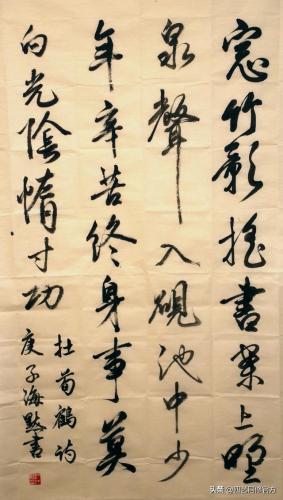 窓竹影摇書案上野
泉聲入硯池中少
年辛苦终身事莫
向光陰惰寸功
杜荀鶴詩
庚子海點書
头条@四艺阁修官方